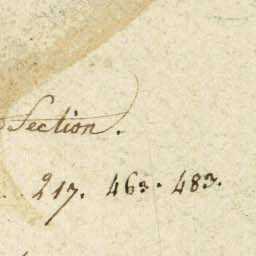 Section.
217. 463. 483.